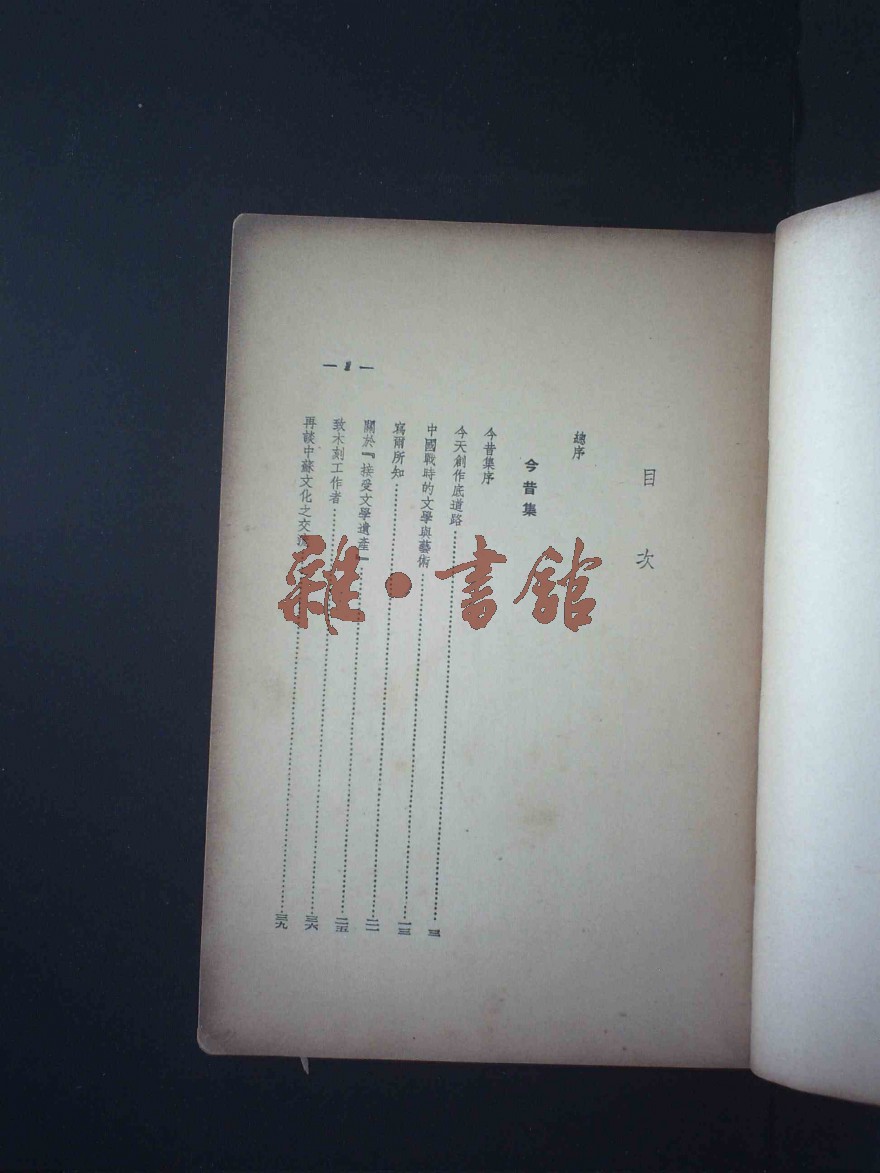 目次
總序
今昔集
今昔集序
今天創作底道路 三
中國戰時的文學與藝術 一三
寫爾所知 二一
關於『接受文學遺產』 二五
致木刻工作者 三六
再談中蘇文化之交流 三九
雜·書館